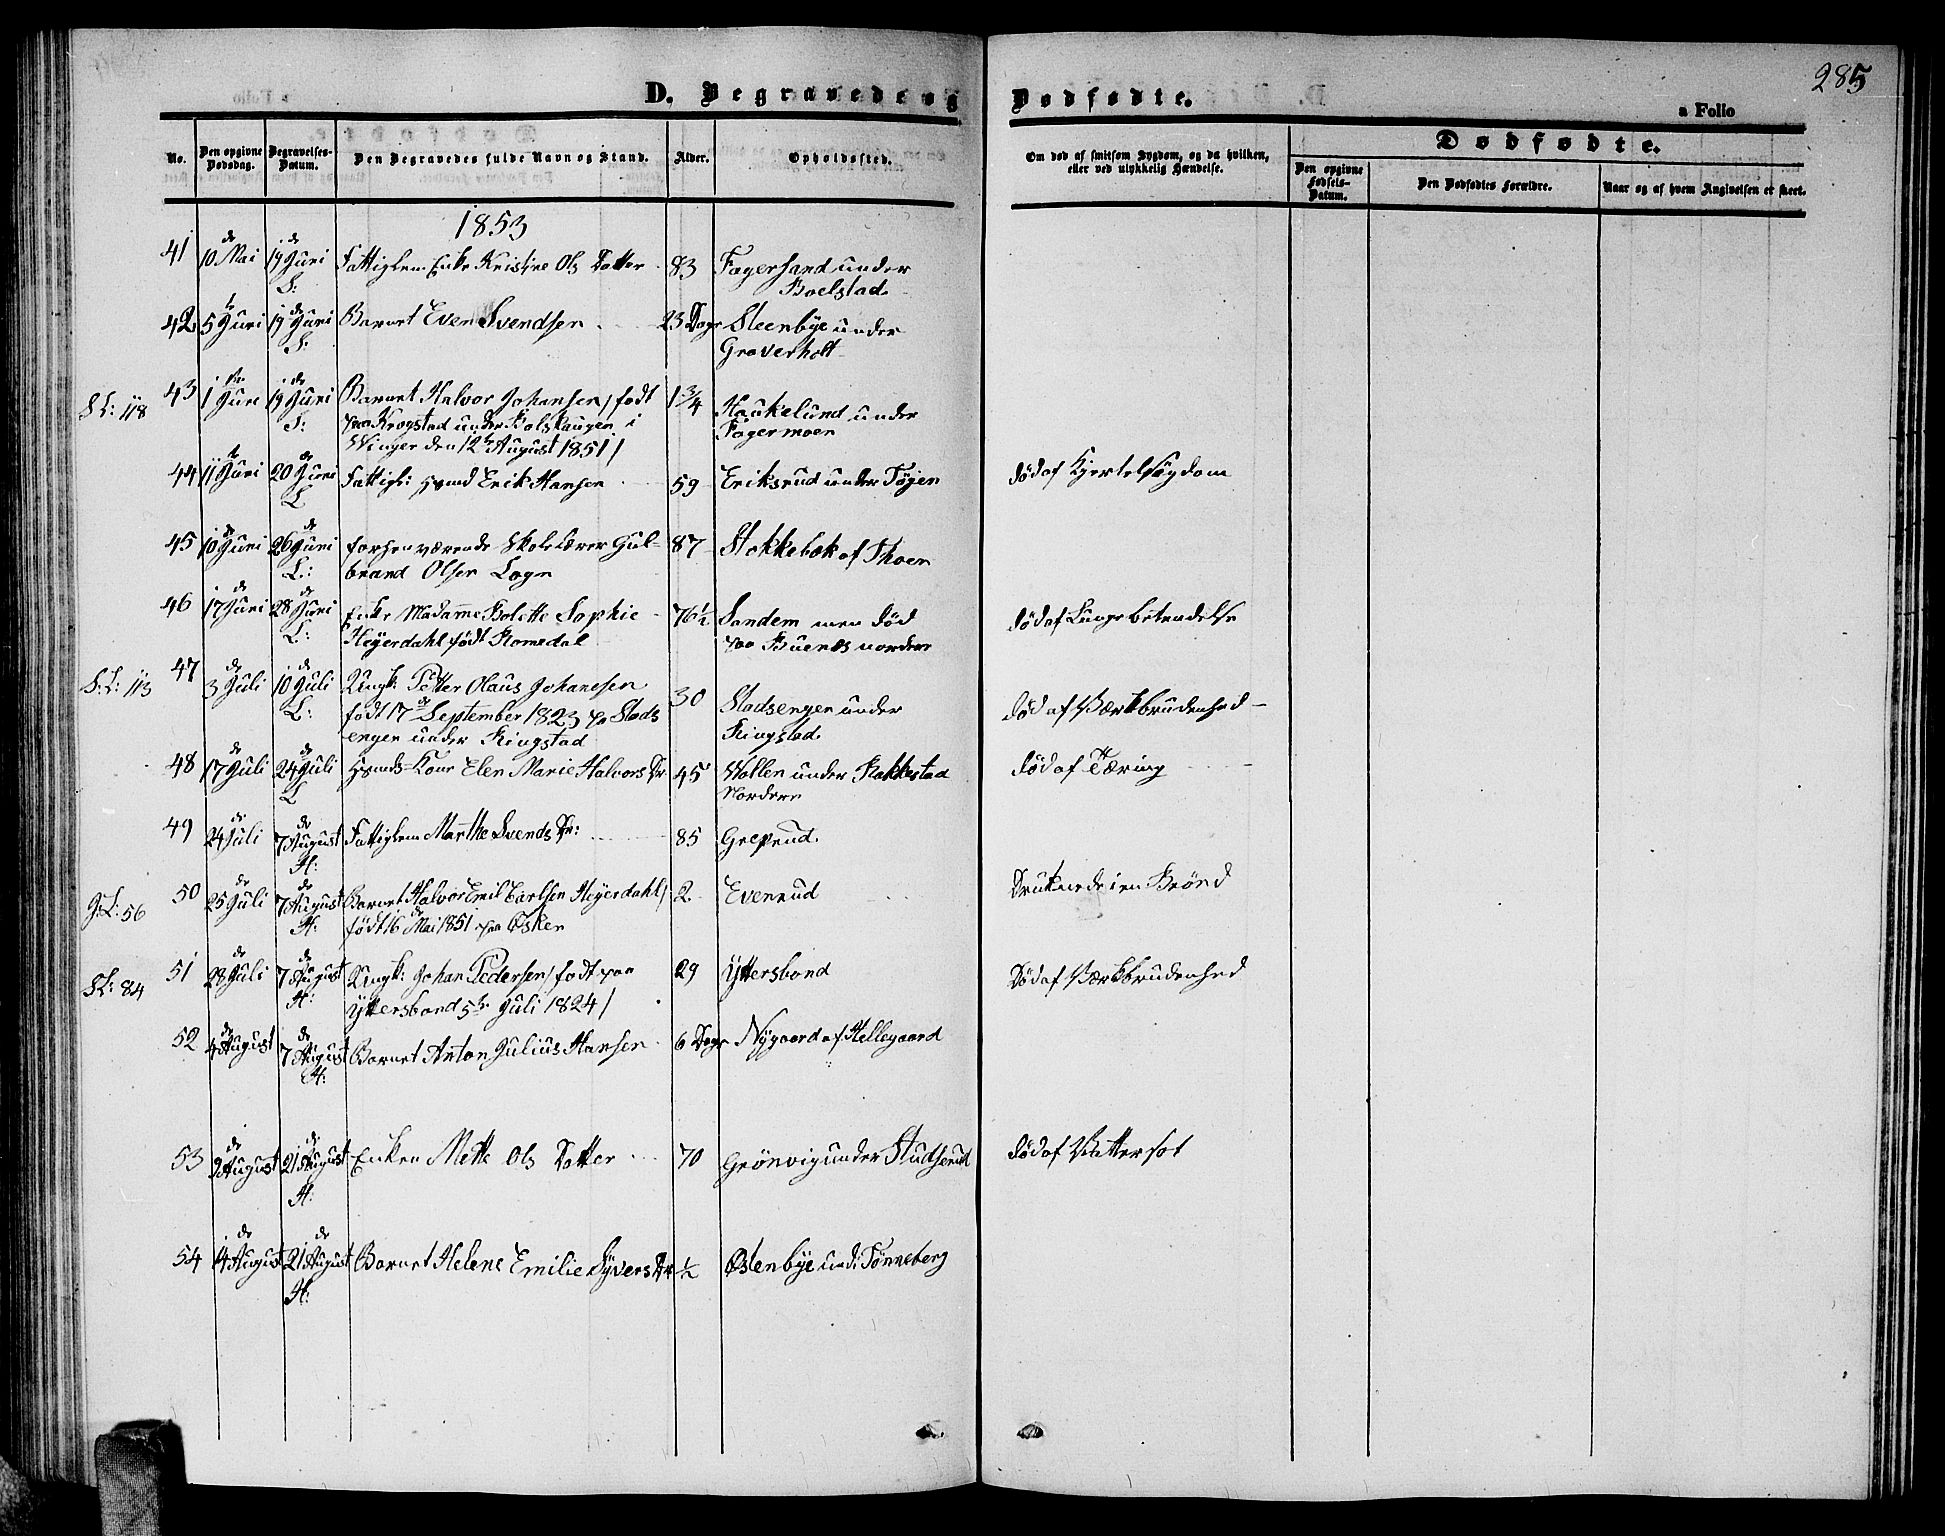 285
D. Begravede og Dødfødte.
a Folio
No. Den opgivne Dødsdag. Begravelses-Datum. Den Begravedes fulde Navn og Stand. Alder. Opholdssted. Om død af smitsom Sygdom, og da hvilken, eller ved ulykkelig Hændelse. Dødfødte. Den opgivne Fødsels-Datum. Den Dødfødtes Forældre. Naar og af hvem Angivelsen er skeet.
1853
41 10de Mai 19de Juni Fattiglem Enke Kristine Ols Datter 83 Fagersand under
S: Boelstad
42 5te Juni 19de Juni Barnet Even Svendsen 23 Dage Steenbye under
S: Graverholt
S L: 118 43 1ste Juni 19de Juni Barnet Halvor Johansen / født 1 3/4 Haukelund under
S: paa Krogstad under Bolskaugen i Fagermoen
Winger den 12te August 1851 /
44 11te Juni 20de Juni Fattigl: Hsmd Erik Hansen 59 Eriksrud under Tøien død af Kjertelsygdom
L
45 10de Juni 26de Juni forhenværende Skolelærer Gul- 87 Stokkebæk af Thoen
L: brand Olsen Logn
46 17de Juni 28de Juni Enke Madamme Bolette Sophie 76 1/2 Sandem men død død af Lungebetændelse
L: Heyerdahl født Romedal paa Buenæs nordere
S: L: 113 47 3de Juli 10de Juli Ungk: Petter Olaus Johanesen 30 Stadsengen under død af Værkbrudenhed
L: født 17de September 1823 paa Stads Ringstad
engen under Ringstad
48 17de Juli 24de Juli Hsmds-Kone Elen Marie Halvors Dr 45 Vollen under Rakkestad død af Tæring
L Nordere
49 24de Juli 7de August Fattiglem Marthe Svends Dr: 85 Greprud
H:
G: L: 56 50 25de Juli 7de August Barnet Halvor Emil Carlsen Heyerdahl / 2 Evenrud Druknede i en Brønd
H: født 16de Mai 1851 paa Østen
S L: 84 51 28de Juli 7de August Ungk: Johan Pedersen / født paa 29 Yttersbond Død af Værkbrudenhed
H: Yttersbond 5te Juli 1824 /
52 4de August 7de August Barnet Anton Julius Hansen 6 Dage Nygaard af Hellegaard
H:
53 9de August 21de August Enken Mette Ols Datter 70 Grønvig under Studserud død af Vattersot
H:
54 14de August 21de August Barnet Helene Emilie Syvers Dr 1/2 Østenbye und: Tønneberg
H: